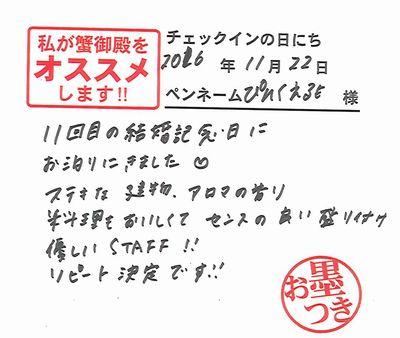 私が蟹御殿を
オススメ
します!!
チェックインの日にち
2016 年 11月 22日
ペンネーム ぴんくえるて 様
11回目の結婚記念日に
お泊りにきました
ステキな建物、アロマの香り
お料理もおいしくて センスの良い盛り付け
優しい STAFF!!
リピート決定です!!
お墨つき